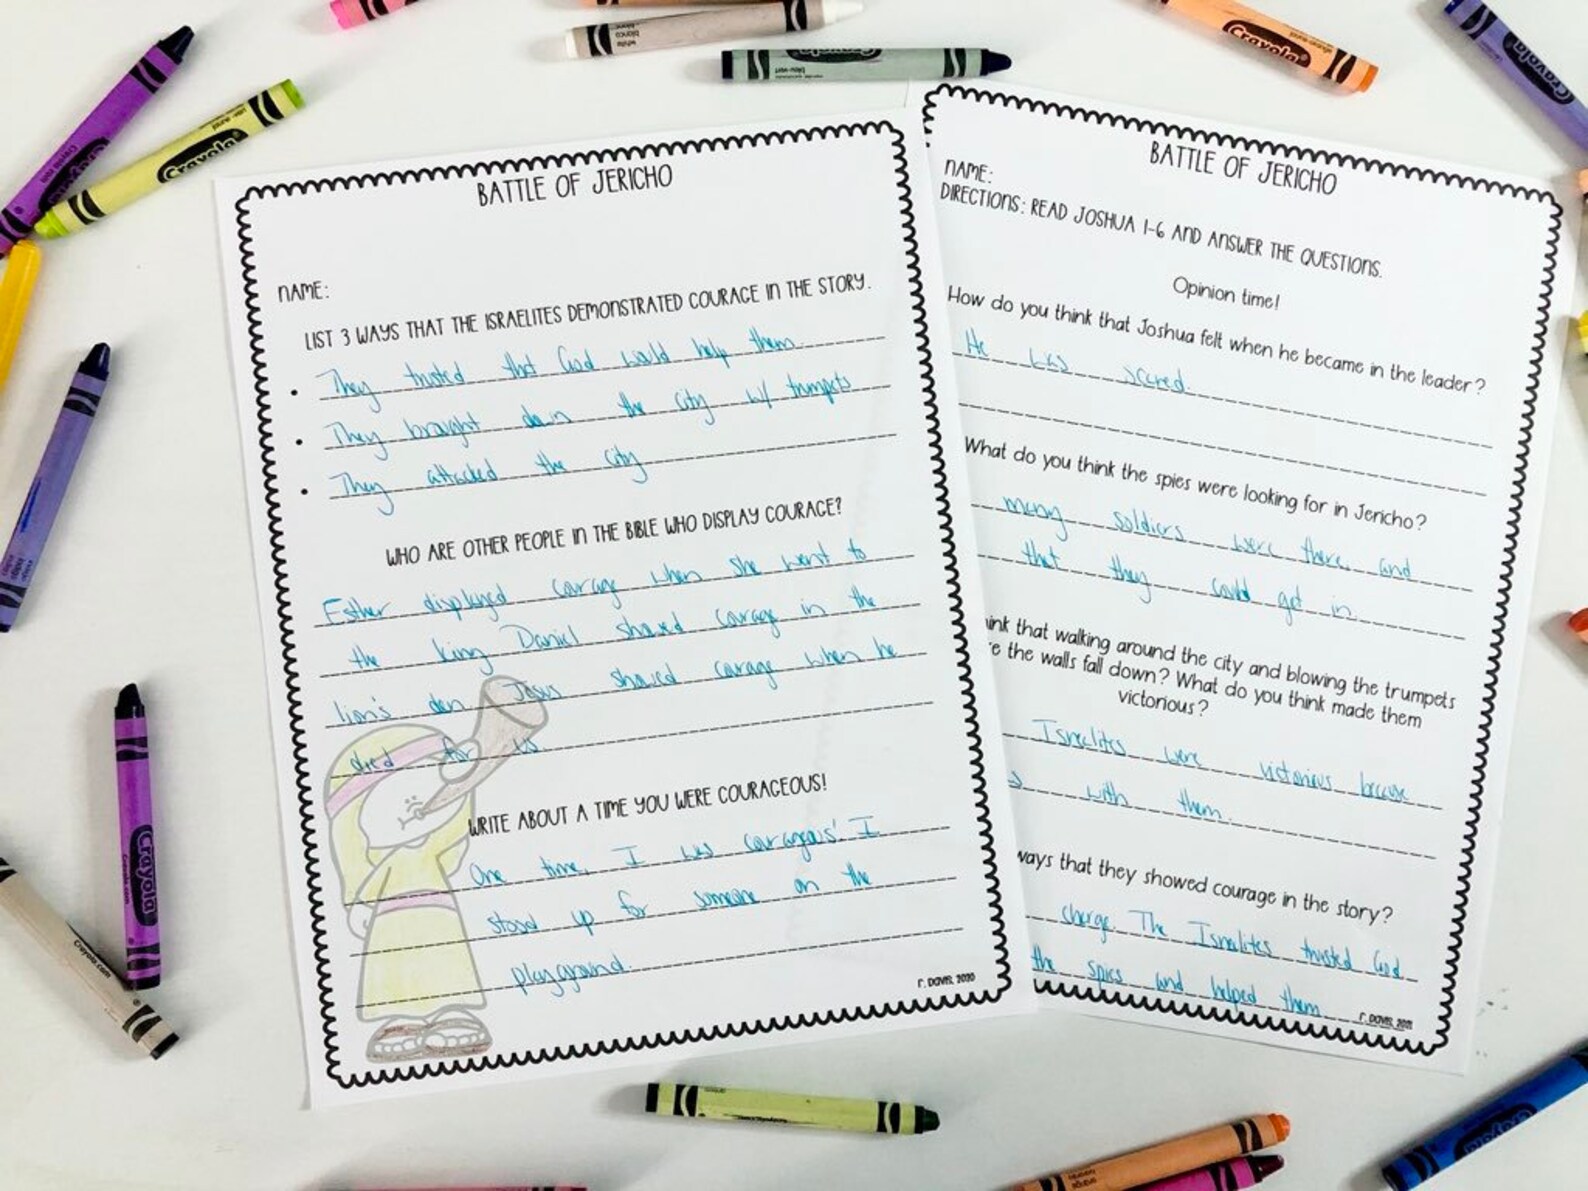 BATTLE OF JERICHO
NAME:
LIST 3 WAYS THAT THE ISRAELITES DEMONSTRATED COURAGE IN THE STORY.
• They trusted that God would help them.
• They brought down the city w/ trumpets
• They attacked the city
WHO ARE OTHER PEOPLE IN THE BIBLE WHO DISPLAY COURAGE?
Esther displayed courage when she went to
the king Daniel showed courage in the
lion's den Jesus showed courage when he
died for us
WRITE ABOUT A TIME YOU WERE COURAGEOUS!
One time, I was courageous! I
stood up for someone on the
playground.
r. DAVIS, 2020
BATTLE OF JERICHO
NAME:
DIRECTIONS: READ JOSHUA 1-6 AND ANSWER THE QUESTIONS.
Opinion time!
How do you think that Joshua felt when he became in the leader?
He was scared.
What do you think the spies were looking for in Jericho?
many soldiers were there, and
that they could get in.
ink that walking around the city and blowing the trumpets
e the walls fall down? What do you think made them
victorious?
Israelites were victorious because
s with them.
ways that they showed courage in the story?
charge. The Israelites trusted God
the spies and helped them
r. DAVIS,
Crayola
Crayola
Crayola
Crayola
Crayola
Crayola
Crayola.com
white
blanco
blanc